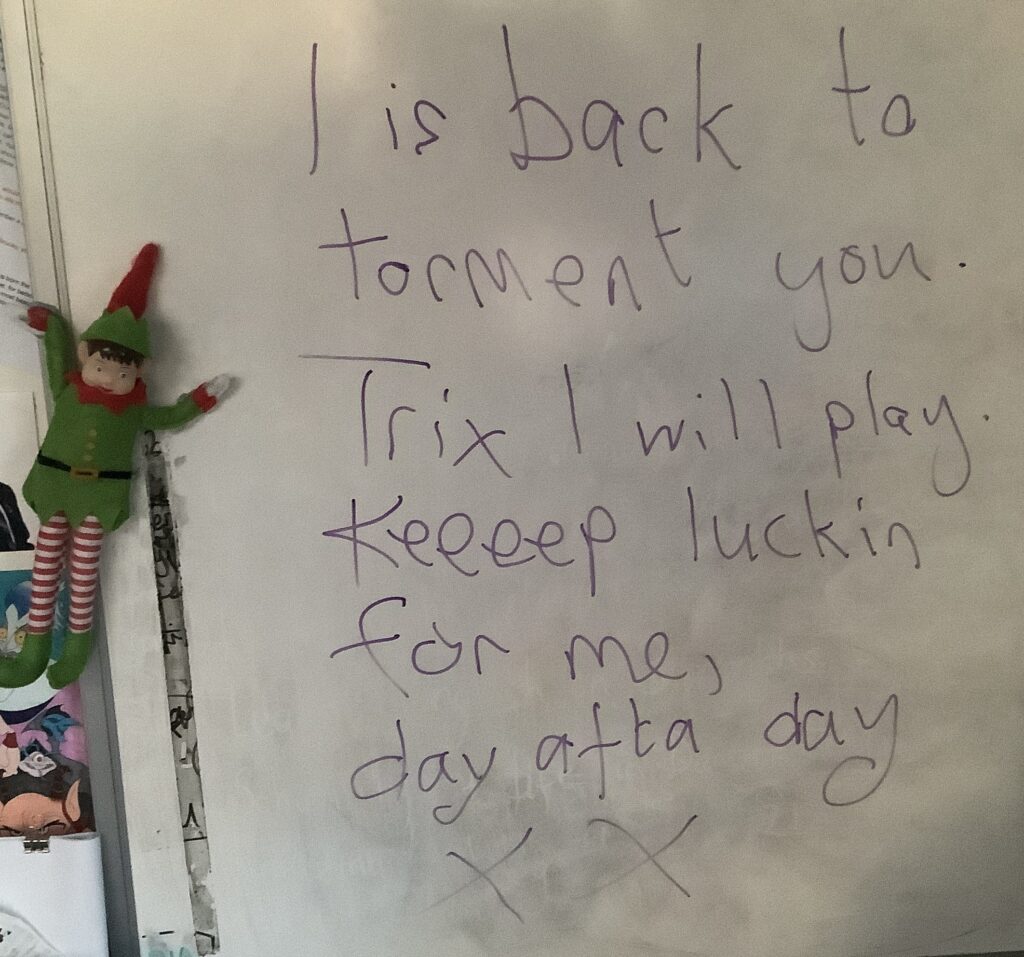 I is back to
torment you.
Trix I will play.
Keeeep luckin
for me,
day afta day
X X